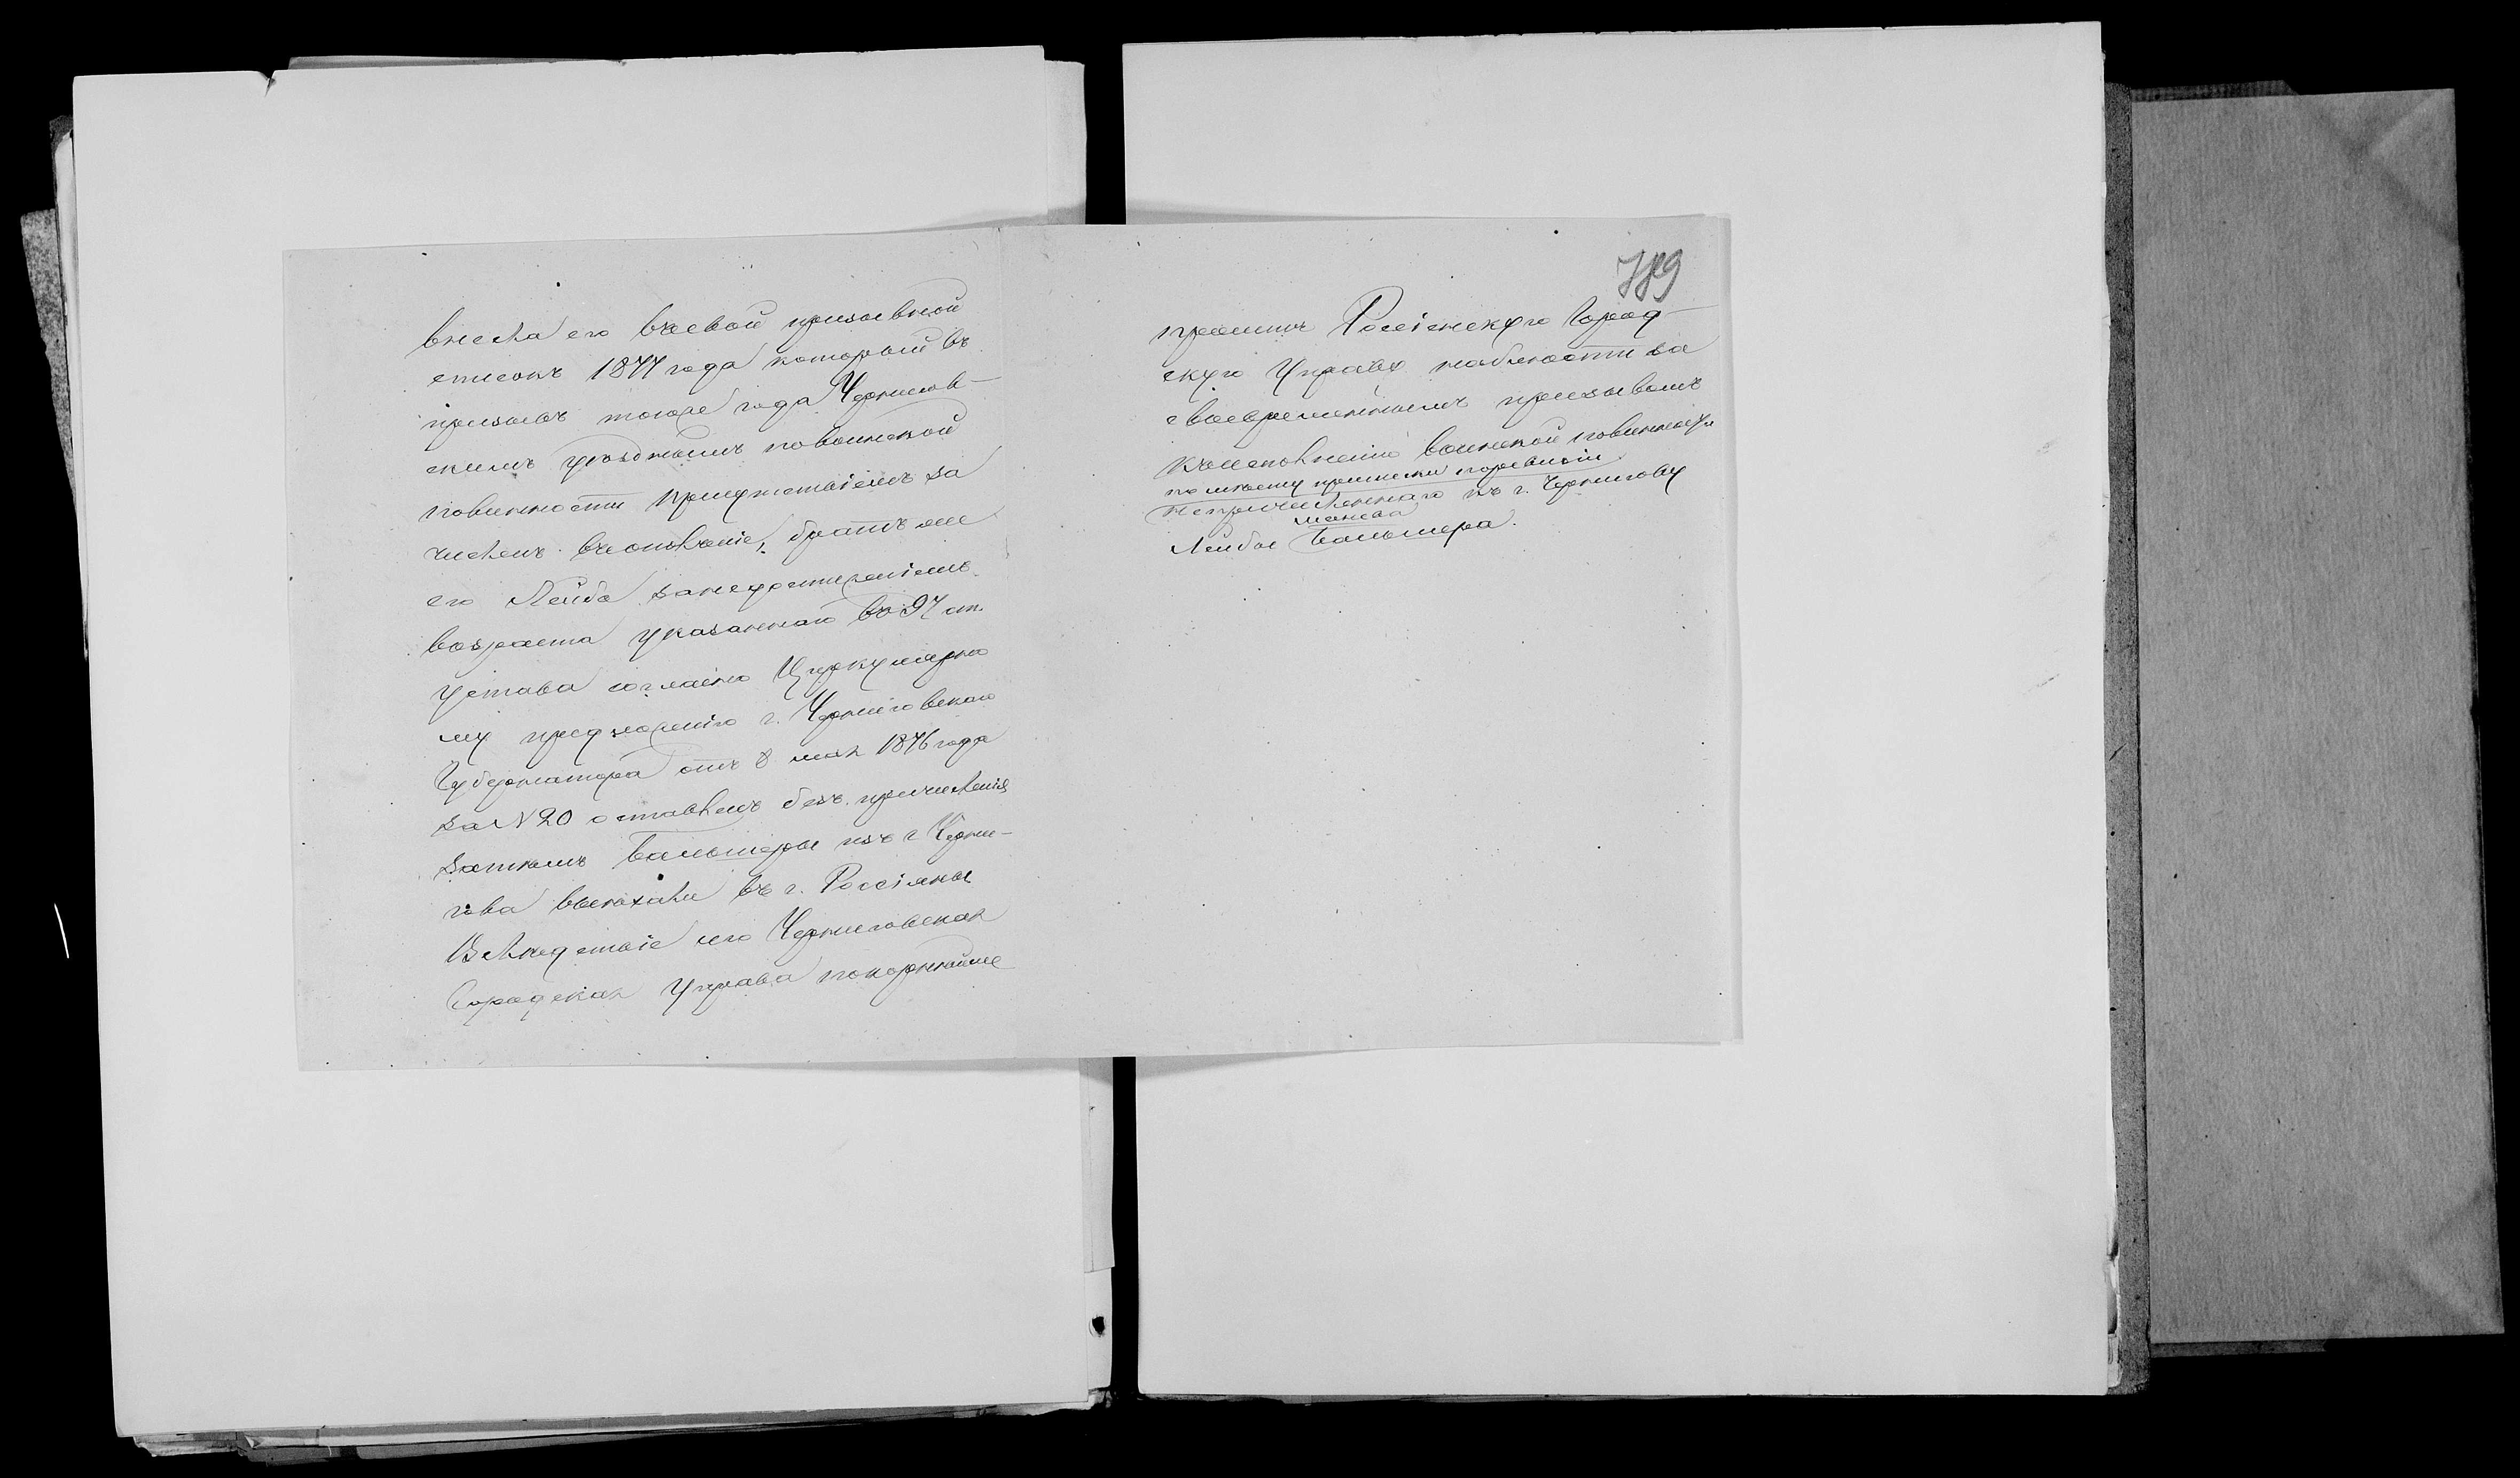 внесла его въсвой призывной
списокъ 1877 года который въ
призывъ тогоже года Чернигов-
скимъ уѣзднымъ повоинской
повинности присутствіемъ за
численъ въополченіе, братъ же
его Лейба занедостиженіемъ
возраста указаннаго въ 97 ст.
устава согласно Циркулярно
му предложенію г. Черниговскаго
Губернатора отъ 8 мая 1876 года
за N 20 оставленъ безъ причисленія
затѣмъ Бальшеры изъ г Черни-
гова выехали въ г. Россіяны
Вследствіе сего Черниговская
Городская Управа покорнейше
789
проситъ Россіенскую Город-
скую Управу наблюсти за
своевременнымъ призывомъ
къисполненію воинской повинности
по мѣсту приписки поревизіи
непричисленнаго къ г. Чернигову
Лейбы Бальшера.